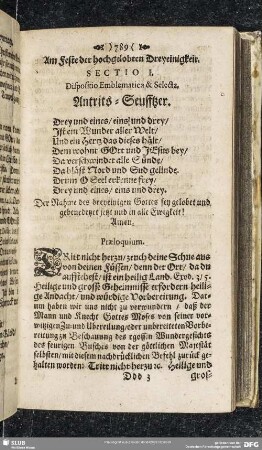 )789(
Am Feste der hochgelobten Dreyeinigkeit.
SECTIO I.
Dispositio Emblematica & Selecta.
Antrits-Seufftzer.
Drey und eines/ eins und drey/
Ist ein Wunder aller Welt/
Und ein Hertz das dieses hält/
Dem wohnt GOtt und JEsus bey/
Da verschwindet alle Sünde/
Da bläst Nord und Sud gelinde.
Drum O Seel erkenne frey/
Drey und eines/ eins und drey.
Der Nahme des dreyeinigen Gottes sey gelobet und
gebenedeyet jetzt und in alle Ewigkeit!
Amen.
Præloquium.
TRitt nicht herzu/ zeuch deine Schue aus
von deinen Füssen/ denn der Ort/ da du
auffstehest/ ist ein heilig Land. Exod. 3/5.
Heilige und grosse Geheimnisse erfordern heili-
ge Andacht/ und würdige Vorbereitung. Dar-
um haben wir uns nicht zu verwundern/ daß der
Mann und Knecht Gottes Moses von seiner vor-
witzigen zu und Ubereilung/ oder unbereiteten Vorbe-
reitung zu Beschauung des grossen Wundergesichts
des feurigen Busches von der göttlichen Majestät
selbsten/ mit diesem nachdrücklichen Befehl zurück ge-
halten worden: Tritt nicht herzu ꝛc. Heilige und
Ddd 3 gros-
SLUB